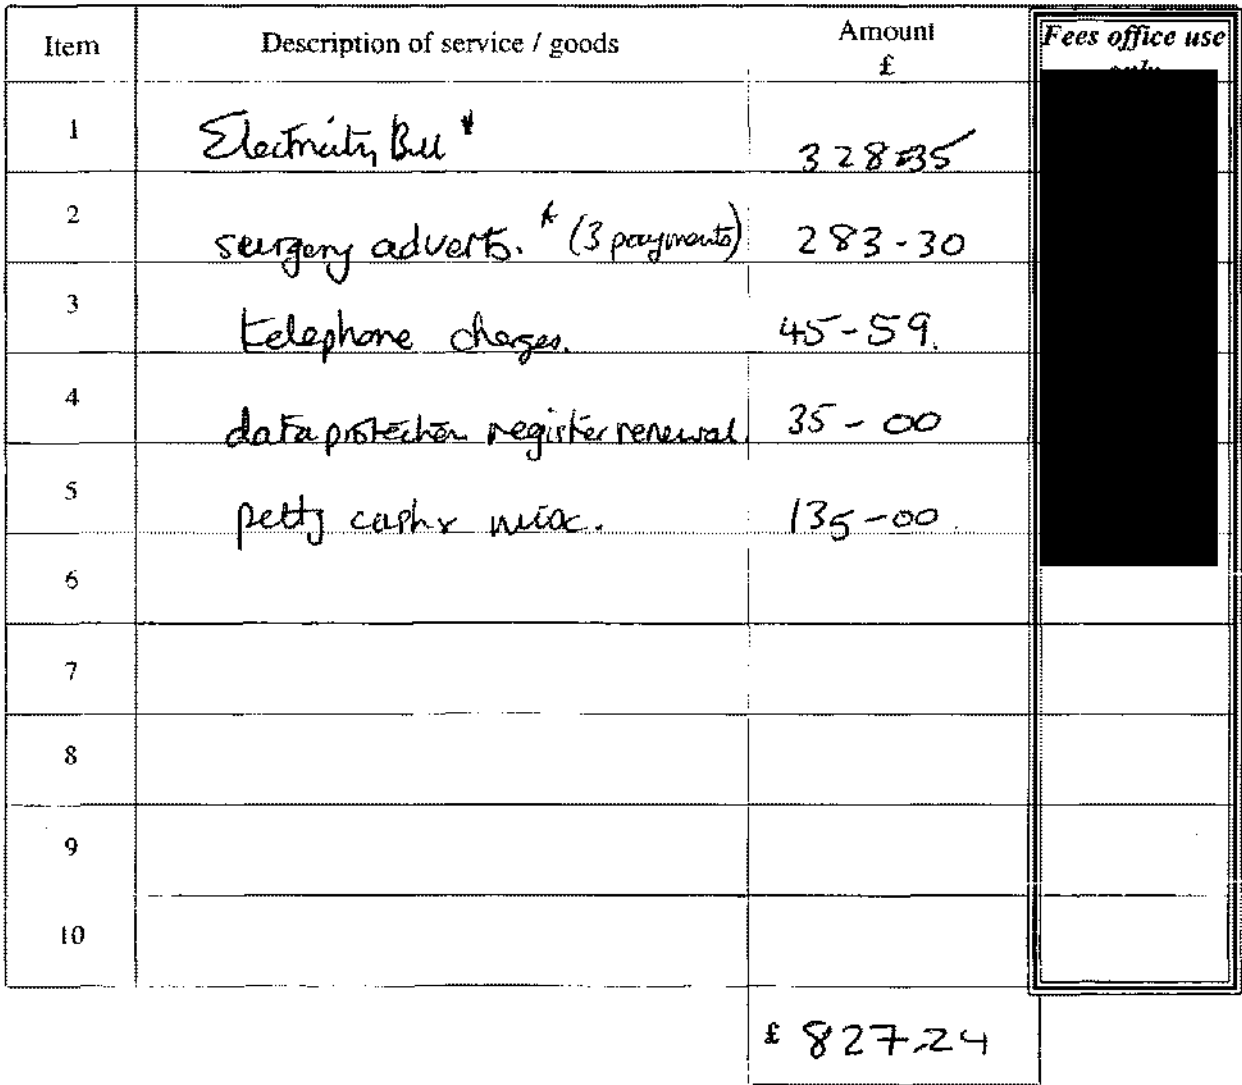 Item Description of service / goods Amount £ Fees office use only
1 Electricity Bill * 328-35
2 surgery adverts. * (3 payments) 283-30
3 telephone charges. 45-59.
4 data protection register renewal. 35-00
5 petty cash & misc. 135-00
6
7
8
9
10
£ 827.24